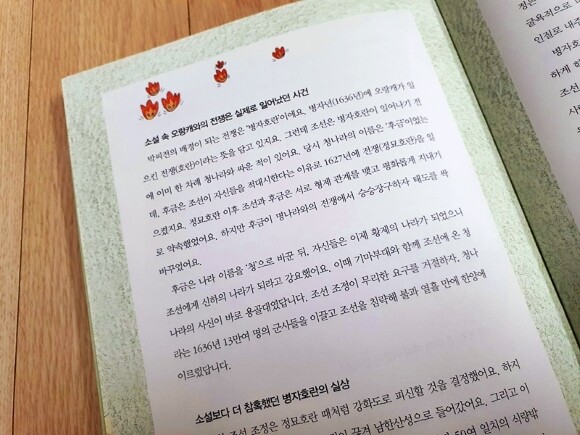 소설 속 오랑캐와의 전쟁은 실제로 일어났던 사건
박씨전의 배경이 되는 전쟁은 '병자호란'이에요. 병자년(1636년)에 오랑캐가 일
으킨 전쟁(호란)이라는 뜻을 담고 있지요. 그런데 조선은 병자호란이 일어나기 전
에 이미 한 차례 청나라와 싸운 적이 있어요. 당시 청나라의 이름은 '후금'이었는
데, 후금은 조선이 자신들을 적대시한다는 이유로 1627년에 전쟁(정묘호란)을 일
으켰지요. 정묘호란 이후 조선과 후금은 서로 형제 관계를 맺고 평화롭게 지내기
로 약속했었어요. 하지만 후금이 명나라와의 전쟁에서 승승장구하자 태도를 싹
바꾸었어요.
후금은 나라 이름을 '청'으로 바꾼 뒤, 자신들은 이제 황제의 나라가 되었으니
조선에게 신하의 나라가 되라고 강요했어요. 이때 기마부대와 함께 조선에 온 청
나라의 사신이 바로 용골대였답니다. 조선 조정이 무리한 요구를 거절하자, 청나
라는 1636년 13만여 명의 군사들을 이끌고 조선을 침략해 불과 열흘 만에 한양에
이르렀답니다.
소설보다 더 참혹했던 병자호란의 실상
조선 조정은 정묘호란 때처럼 강화도로 피신할 것을 결정했어요. 하지
끊겨 남한산성으로 들어갔어요. 그리고 이
50여 일치의 식량밖
정은
굴욕적으로
인질로 내주
병자호
하게 한
조선
사